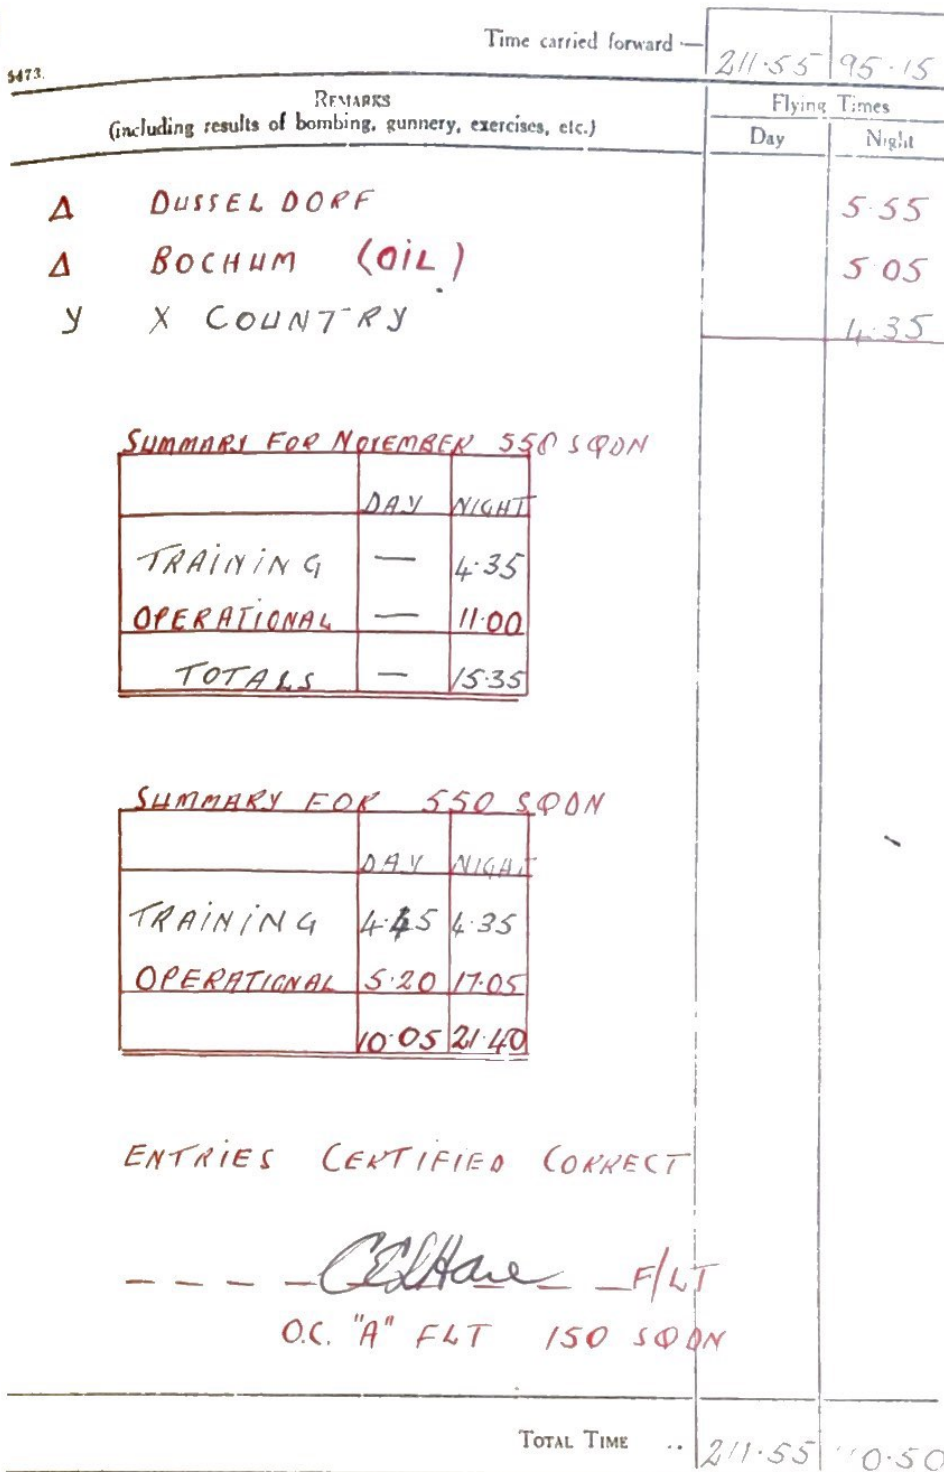 Time carried forward — 211·55 95·15
5473.
REMARKS
(including results of bombing, gunnery, exercises, etc.)
Flying Times
Day Night
Δ DUSSELDORF 5·55
Δ BOCHUM (OIL) 5·05
Y X COUNTRY 4·35
SUMMARY FOR NOVEMBER 550 SQDN
DAY NIGHT
TRAINING — 4·35
OPERATIONAL — 11·00
TOTALS — 15·35
SUMMARY FOR 550 SQDN
DAY NIGHT
TRAINING 4·45 4·35
OPERATIONAL 5·20 17·05
10·05 21·40
ENTRIES CERTIFIED CORRECT
F/LT
O.C. "A" FLT 150 SQDN
TOTAL TIME .. 211·55 110·50